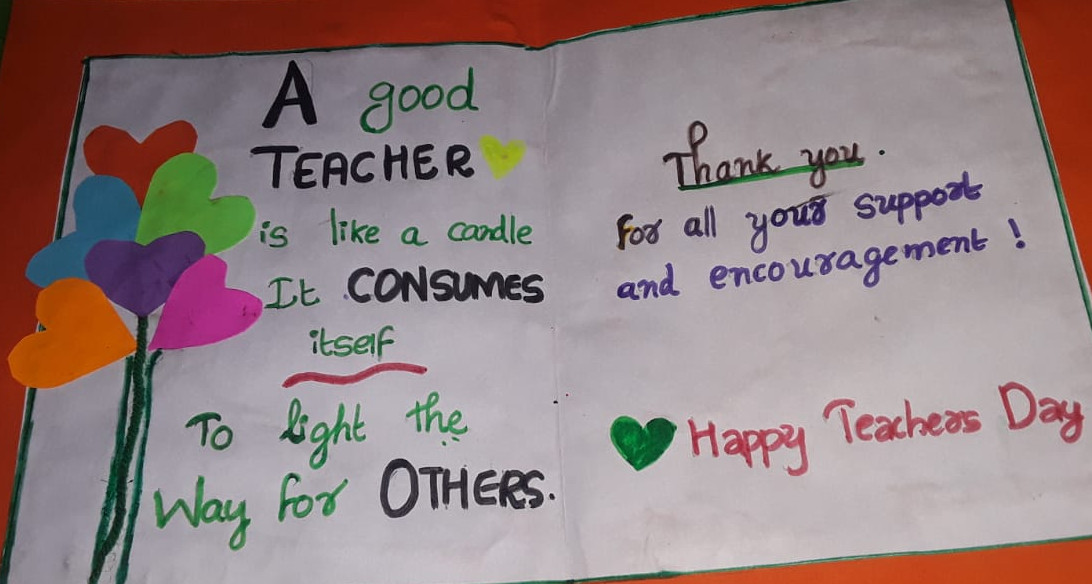 A good
TEACHER
is like a candle
It CONSUMES
itself
To light the
Way for OTHERS.
Thank you.
For all your support
and encouragement!
Happy Teachers Day